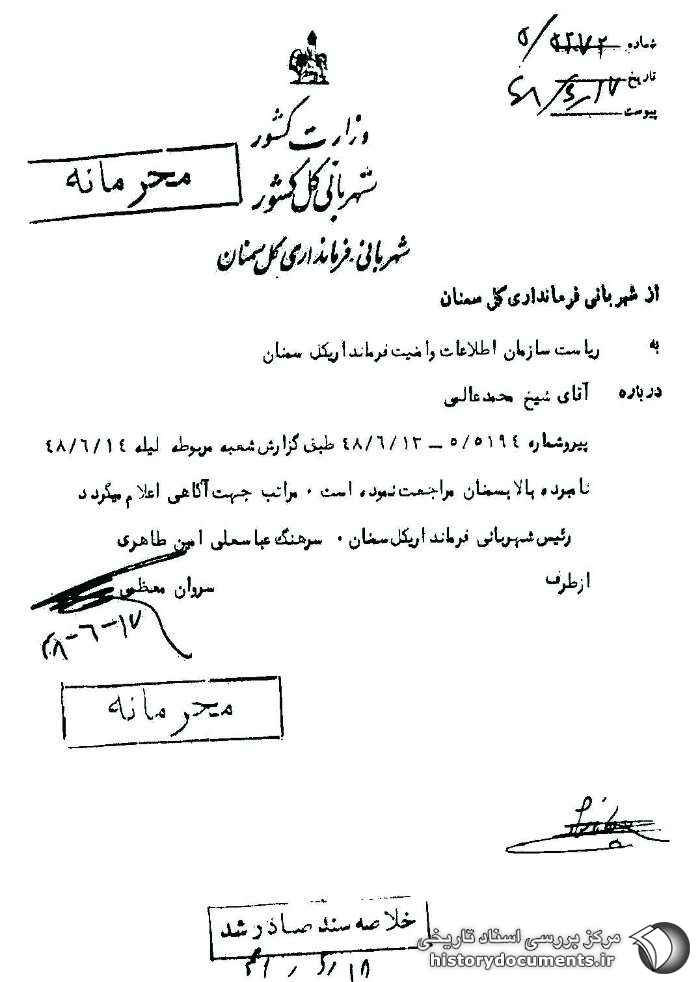 شماره ۵/۵۲۷۲
تاریخ ۴۸/۶/۱۷
پیوست
وزارت کشور
محرمانه
شهربانی کل کشور
شهربانی فرمانداری کل سمنان
از شهربانی فرمانداری کل سمنان
به ریاست سازمان اطلاعات وامنیت فرمانداریکل سمنان
درباره آقای شیخ محمدعالمی
پیروشماره ۵/۵۱۹۴ – ۴۸/۶/۱۳ طبق گزارش شعبه مربوطه لیله ۴۸/۶/۱۴
نامبرده بالا بسمنان مراجعت نموده است ۰ مراتب جهت آگاهی اعلام میگردد
رئیس شهربانی فرمانداریکل سمنان ۰ سرهنگ عباسعلی امین طاهری
ازطرف سروان معظمی
۴۸-۶-۱۷
محرمانه
خلاصه سند صادر شد
مرکز بررسی اسناد تاریخی
historydocuments.ir